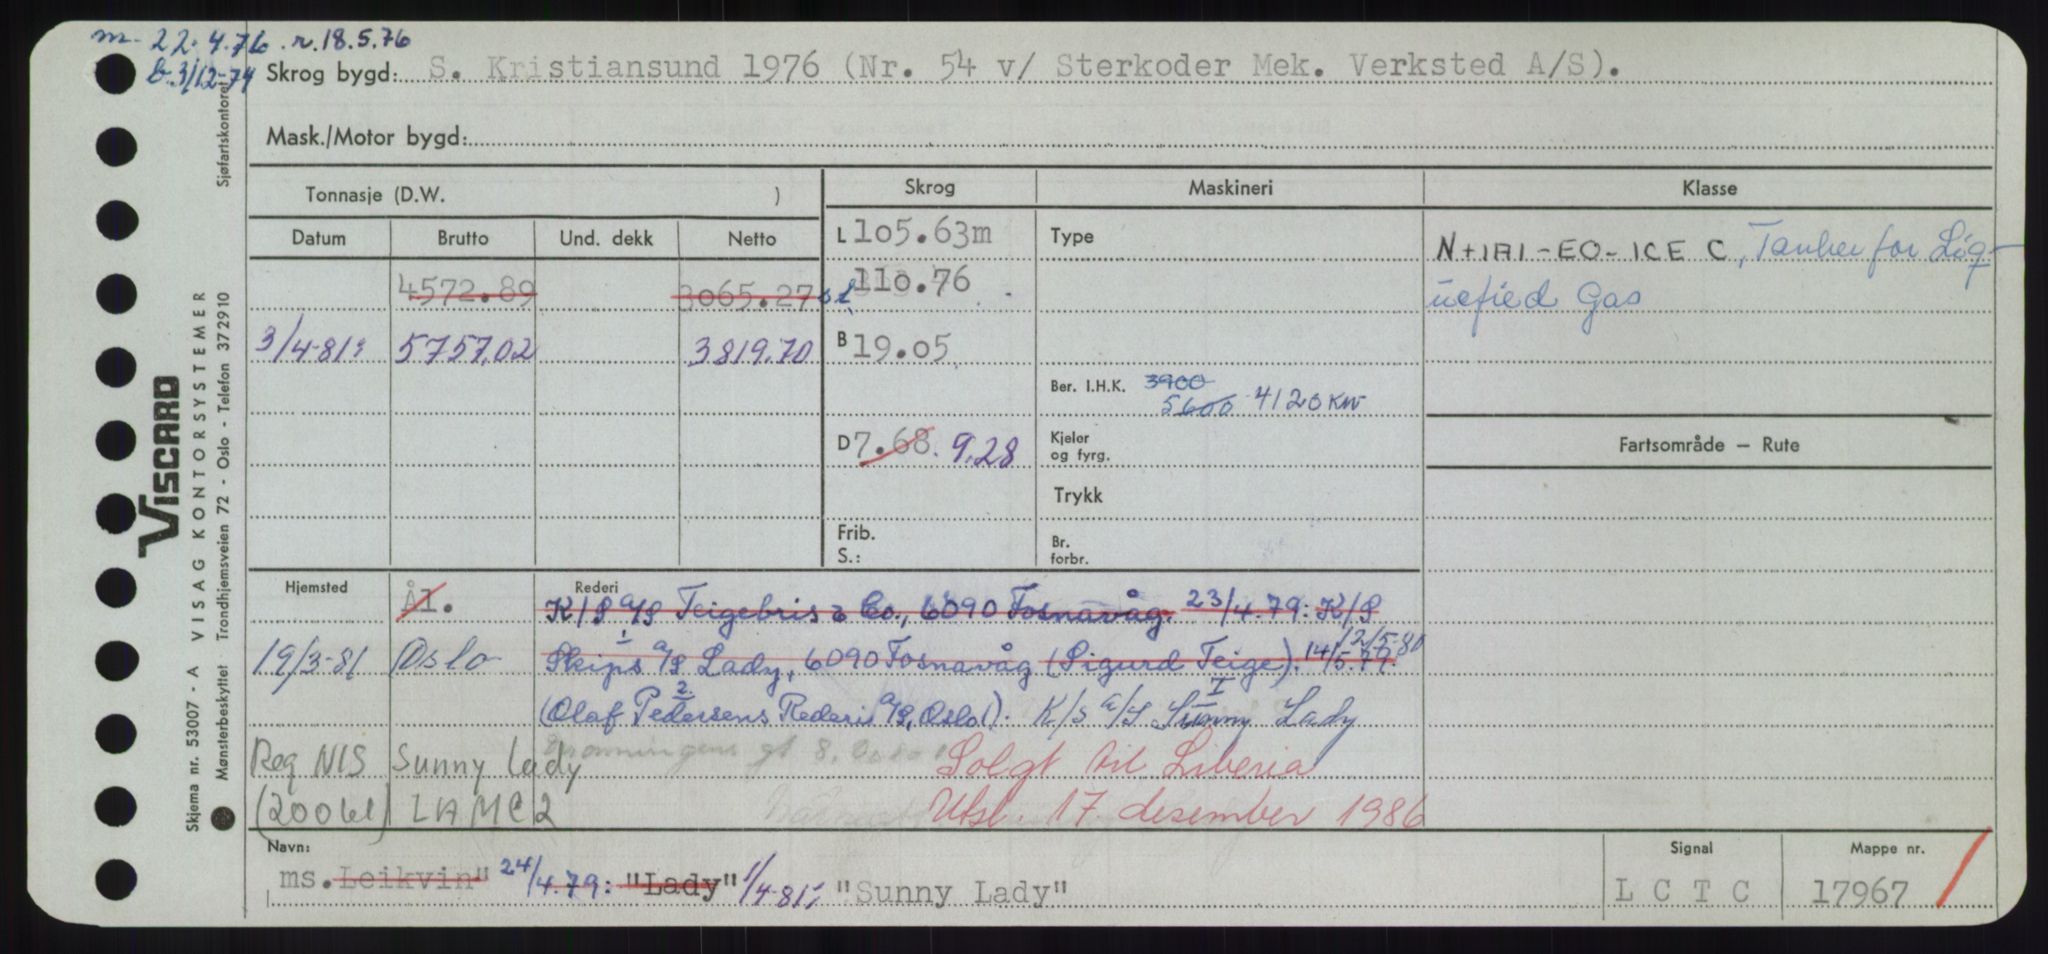 m. 22.4.76. r.18.5.76
b.3/12-74 Skrog bygd: S. Kristiansund 1976 (Nr. 54 v/ Sterkoder Mek. Verksted A/S).
Mask./Motor bygd:
Tonnasje (D.W. ) Skrog Maskineri Klasse
Datum Brutto Und. dekk Netto L 105.63m Type N+1A1-EO-ICE C, Tanker for Liq-
4572.89 3065.27 110.76 uefied Gas
3/4-81: 5757.02 3819.70 B 19.05
Ber. I.H.K. 3900
5600 4120 KW
D 7.68. 9.28 Kjeler og fyrg. Fartsområde — Rute
Trykk
Frib. S.: Br. forbr.
Hjemsted Ål. Rederi K/S A/S Teigebris & Co., 6090 Fosnavåg. 23/4.79: K/S
12/5-80
19/3-81 Oslo Skips 1. A/S Lady, 6090 Fosnavåg (Sigurd Teige). 14/5.77.
(Olaf Pedersens 2. Rederi A/S, Oslo 1). K/S A/S Sunny I Lady
Reg NIS Sunny lady Solgt til Liberia
LAMC2 Utsl. 17. desember 1986
Navn: Signal Mappe nr.
ms. Leikvin" 24/4.79: "Lady" 1/4-81: "Sunny Lady" L C T C 17967
Skjema nr. 53007 - A VISAG KONTORSYSTEMER
Mønsterbeskyttet Trondhjemsveien 72 - Oslo - Telefon 372910 Sjøfartskontoret
VISCARD